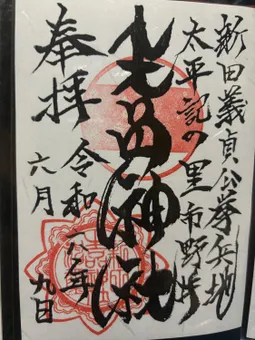 新田義貞公挙兵地
太平記の里 市野井
生品神社
奉拝 令和八年
六月 九日